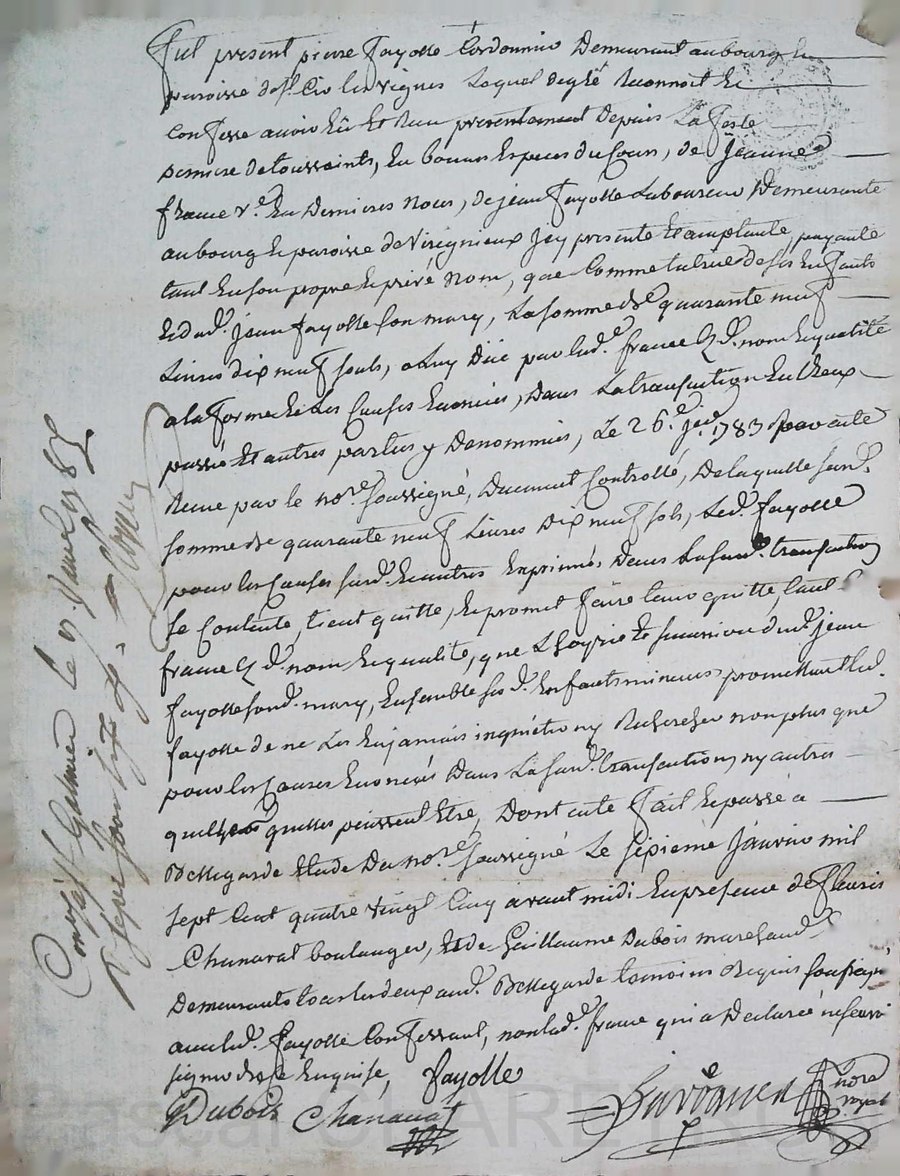 Fut présent pierre Fayolle Cordonnier Demeurant au bourg &
paroisse de st Cir les vignes Lequel de gré Reconnoit Et
Confesse avoir Eû Et Reçu présentement Depuis La feste
derniere de toussaints, En bonnes Especes du Cours, de Jeanne
france ve. En Dernieres Noces, de jean Fayolle Laboureur Demeurante
au bourg & paroisse de Virignieux Icy presente Et acceptante, payante
tant En son propre & privé nom, que Comme tutrice de ses Enfants
& dud. jean fayolle son mary, La somme de quarante neuf
Livres dix neuf sols, a Luy Düe par lad.e france Esd. nom & qualité
a la forme & Les Causes Enoncées, Dans La transaction Entr'eux
passée Et autres parties y Dénommées, Le 26.e jer. 1783 par acte
Reçue par le no.re soussigné, Duement Controllé, De laquelle susd.
somme de quarante neuf Livres Dix neuf sols, Led. fayolle
pour les Causes susd. & autres Exprimées Dans La susd. transaction
se Contente, tient quitte, & promet faire tenir quitte, tant lad.
france Esd. nom & qualité, que L'hoyrie & succession dud. jean
fayolle sond. mary, Ensemble sesd. Enfants mineurs promettant led.
fayolle de ne Les En jamais inquiéter ny Rechercher non plus que
pour les Causes Enoncées Dans La susd. transaction, ny autres
quelles quelles puissent Etre, Dont acte Fait & passé a
Bellegarde Etude Du no.re soussigné Le sepieme Janvier mil
sept Cent quatre vingt Cinq avant midi En presence de fleuris
Chanavat boulanger, Et de Guillaume Dubois marchand
Demeurants tous les deux aud. Bellegarde temoins Requis soussignés
avec led. fayolle Confessant, non lad.e france qui a Declaré ne scavoir
signer de ce Enquise, fayolle
Dubois Chanavat
nore
royal
Con.lé a St Galmier le 17 Janvier 1785